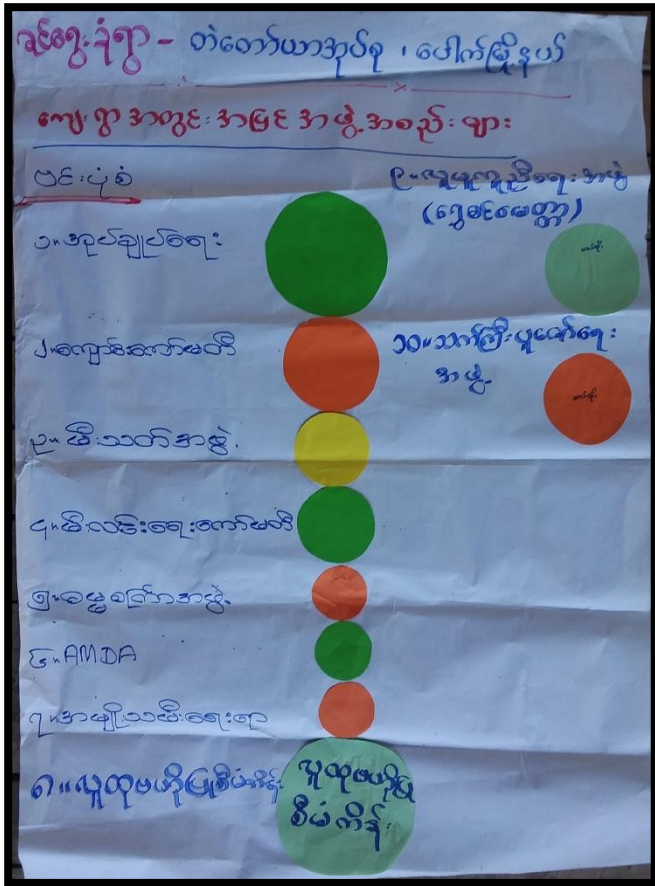 ခင်ရွေးခုံရွာ - တဲတော်ယာအုပ်စု ၊ ပေါက်မြို့နယ်
ကျေးရွာအတွင်းအပြင်အဖွဲ့အစည်းများ
ဗင်းပုံစံ
၁။အုပ်ချုပ်ရေး
၂။ကျောင်းကော်မတီ
၃။မီးသတ်အဖွဲ့
၄။မီးလင်းရေးကော်မတီ
၅။ဓမ္မစကြာအဖွဲ့
၆။AMDA
၇။အမျိုးသမီးရေးရာ
၈။လူထုဗဟိုပြုစီမံကိန်း
လူထုဗဟိုပြု
စီမံကိန်း
၉။လူမှုကူညီရေးအဖွဲ့
(ရွှေမင်မေတ္တာ)
၁၀။သက်ကြီးပူဇော်ရေး
အဖွဲ့